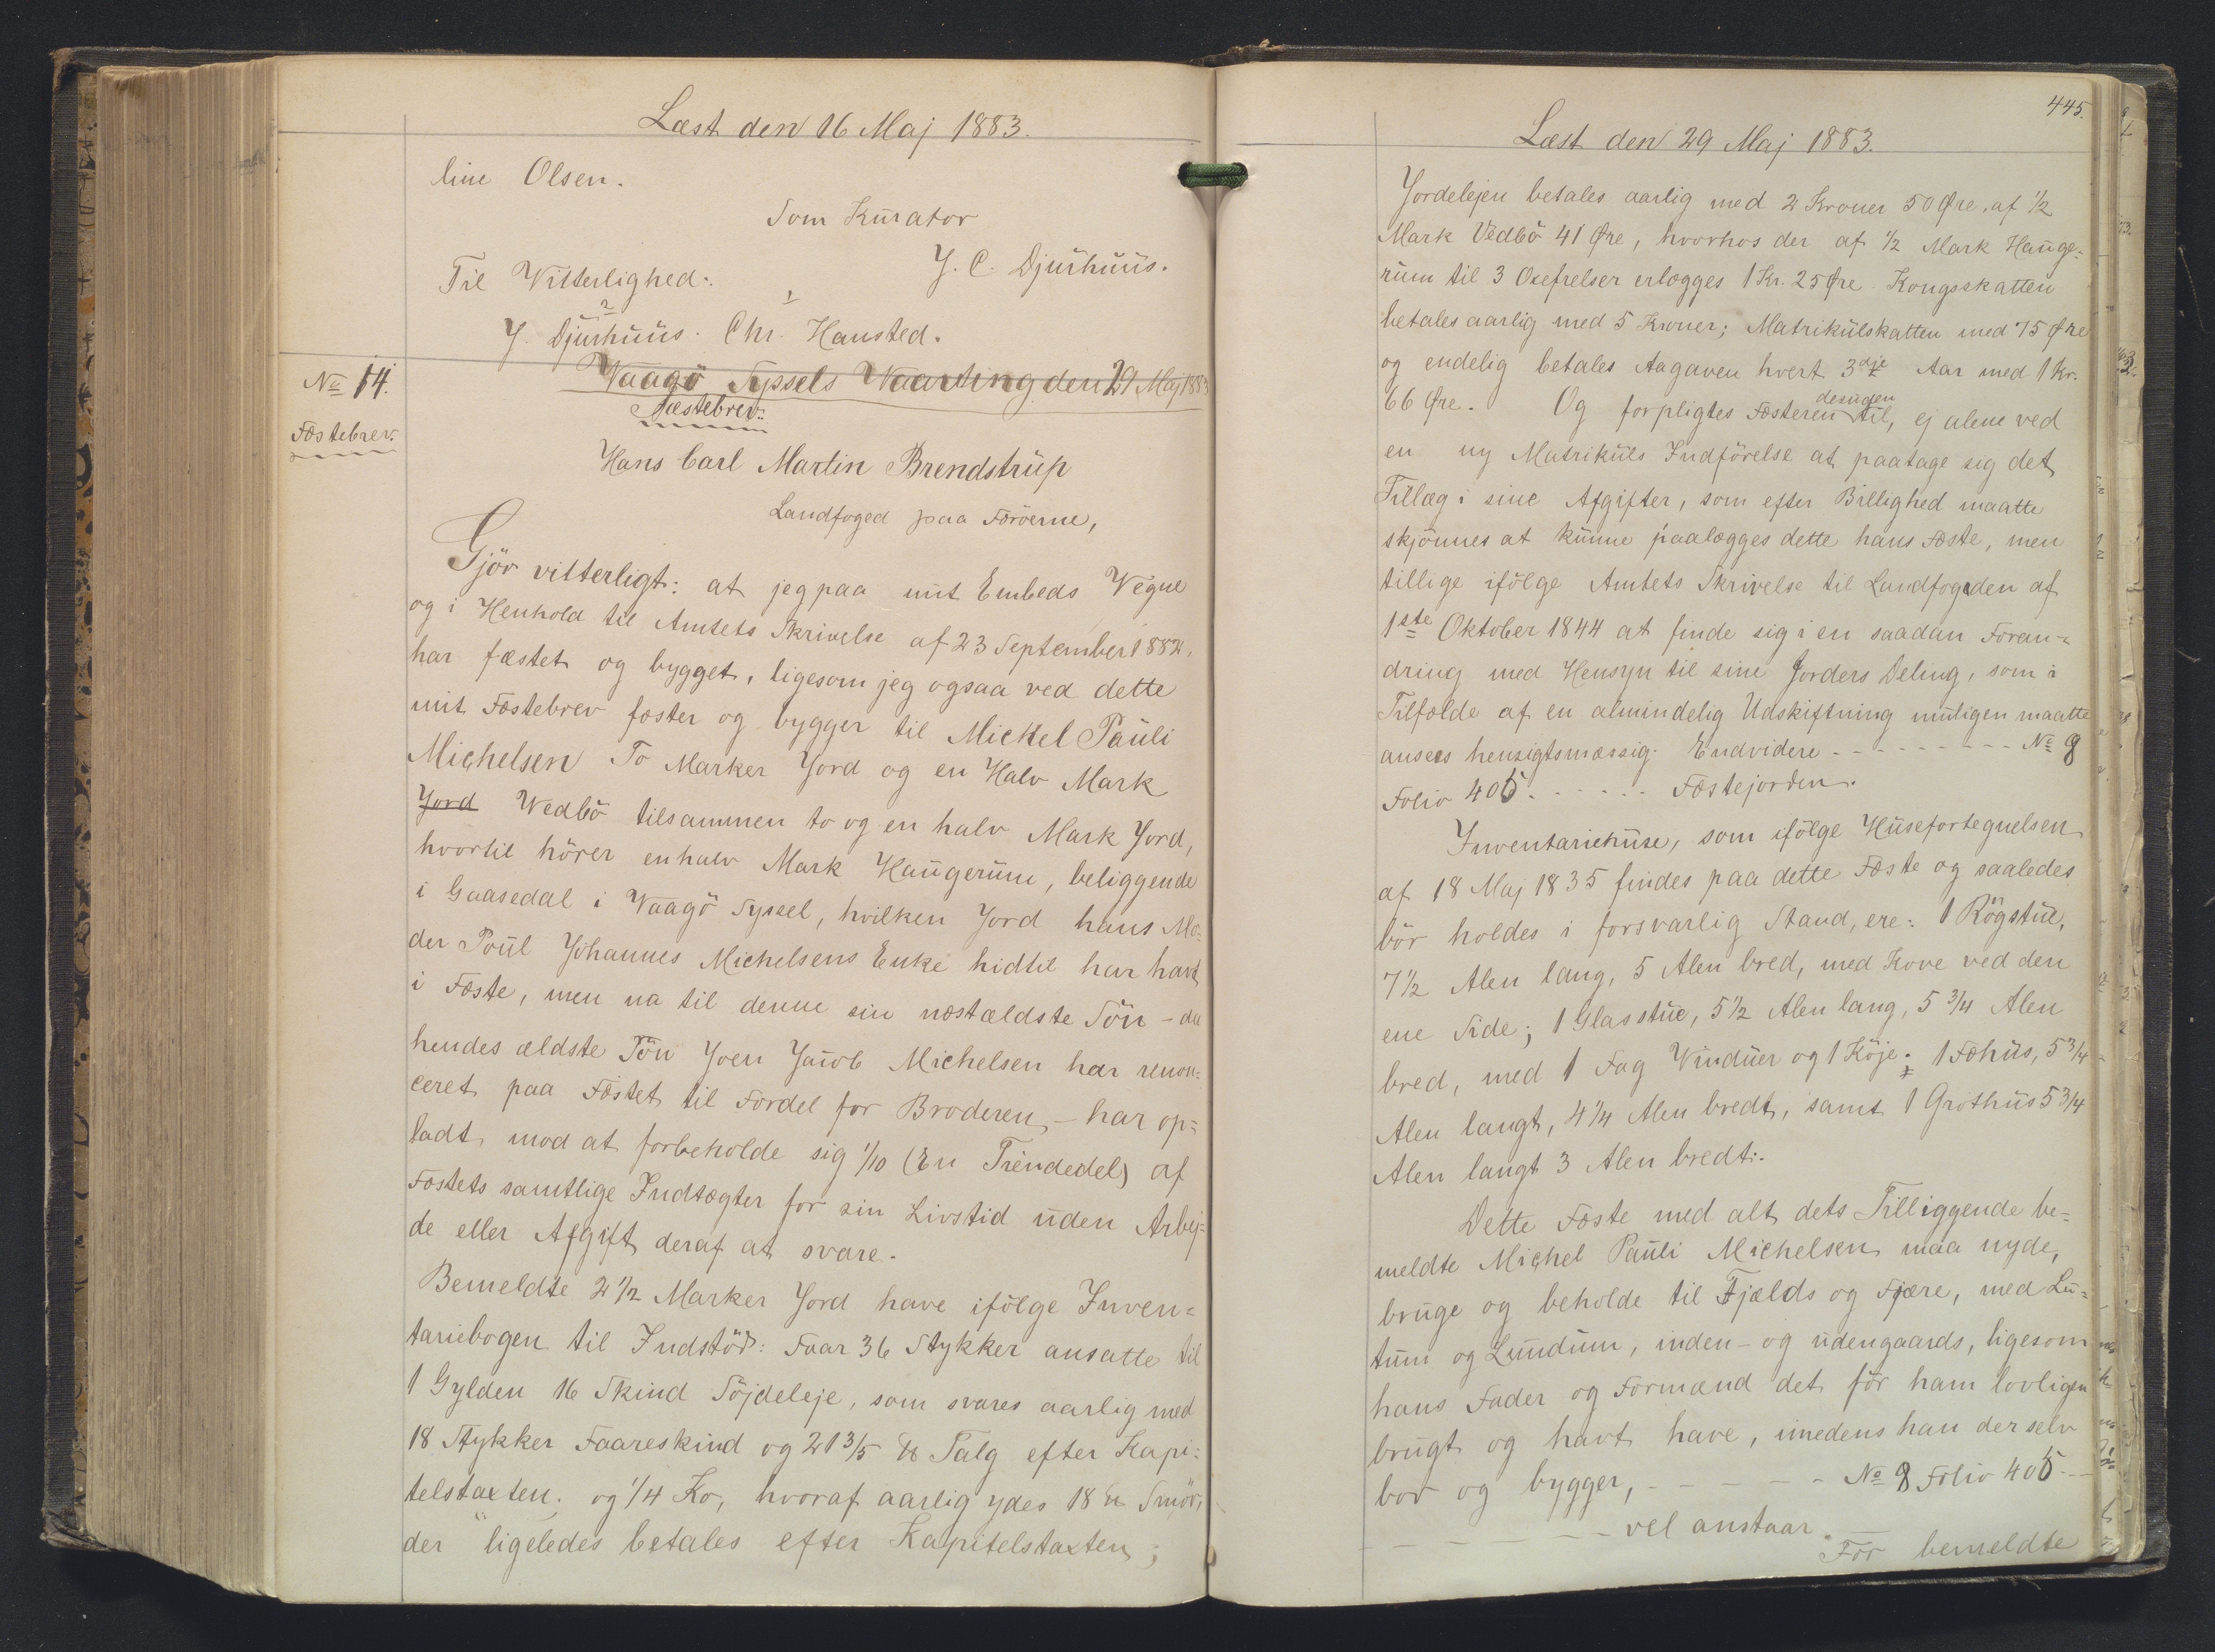 Læst den 16 Maj 1883.
line Olsen.
Som Kurator
J. C. Djurhuus.
Til Vitterlighed:
2 1
J. Djurhuus. Chr. Hansted.
Vaagö Syssels Vaarting den 29 Maj 1883
No 14.
Fæstebrev:
Fæstebrev.
Hans Carl Martin Brendstrup
Landfoged paa Færöerne,
Gjör vitterligt: at jeg paa mit Embeds Vegne
og i Henhold til Amtets Skrivelse af 23 September 1882,
har fæstet og bygget, ligesom jeg ogsaa ved dette
mit Fæstebrev fæster og bygger til Michel Pauli
Michelsen To Marker Jord og en Halv Mark
Jord Vedbö tilsammen to og en halv Mark Jord,
hvortil hörer en halv Mark Haugerum, beliggende
i Gaasedal i Vaagö Syssel, hvilken Jord hans Mo-
der Poul Johannes Michelsens Enke hidtil har havt
i Fæste, men na til denne sin næstældste Sön - da
hendes ældste Sön Joen Jacob Michelsen har renon-
ceret paa Fæstet til Fordel for Broderen, - har op-
ladt mod at forbeholde sig 1/10 (En Tiendedel) af
Fæstets samtlige Indtægter for sin Livstid uden Arbej-
de eller Afgift deraf at svare.
Bemeldte 2 1/2 Marker Jord have ifölge Inven-
tariebogen til Indstöd: Faar 36 Stykker ansatte til
1 Gylden 16 Skind Söjdeleje, som svares aarlig med
18 Stykker Faareskind og 21 3/5 ℔ Talg efter Kapi-
telstaxten, og 1/4 Ko, hvoraf aarlig ydes 18 ℔ Smör,
der ligeledes betales efter Kapitelstaxten;
445.
Læst den 29 Maj 1883.
Jordelejen betales aarlig med 2 Kroner 50 Øre, af 1/2
Mark Vedbö 41 Øre, hvorhos der af 1/2 Mark Hauge-
rum til 3 Oxefrelser erlægges 1 Kr. 25 Øre. Kongsskatten
betales aarlig med 5 Kroner; Matrikulskatten med 75 Øre
og endelig betales Aagaven hvert 3die Aar med 1 Kr.
66 Øre. Og forpligtes Fæsteren desuden til, ej alene ved
en ny Matrikuls Indförelse at paatage sig det
Tillæg i sine Afgifter, som efter Billighed maatte
skjönnes at kunne paalægges dette hans Fæste, men
tillige ifölge Amtets Skrivelse til Landfogden af
1ste Oktober 1844 at finde sig i en saadan Foran-
dring med Hensyn til sine Jorders Deling, som i
Tilfælde af en almindelig Udskiftning muligen maatte
ansees hensigtsmæssig. Endvidere - - - - - - - - - No 8
Folio 405 - - - - - - Fæstejorden.
Inventariehuse, som ifölge Husefortegnelsen
af 18 Maj 1835 findes paa dette Fæste og saaledes
bör holdes i forsvarlig Stand, ere: 1 Rögstue,
7 1/2 Alen lang, 5 Alen bred, med Kove ved den
ene Side; 1 Glasstue, 5 1/2 Alen lang, 5 3/4 Alen
bred, med 1 Fag Vinduer og 1 Köje; 1 Fæhus, 5 3/4
Alen langt, 4 1/4 Alen bredt, samt 1 Grothus 5 3/4
Alen langt 3 Alen bredt.
Dette Fæste med alt dets Tilliggende be-
meldte Michel Pauli Michelsen maa nyde,
bruge og beholde til Fjælds og Fjære, med Lu-
tum og Lundum, inden- og udengaards, ligesom
hans Fader og Formænd det för ham lovligen
brugt og havt have, imedens han der selv
bor og bygger, - - - - - No 8 Folio 405 - -
- - - - - vel anstaar.
For bemeldte